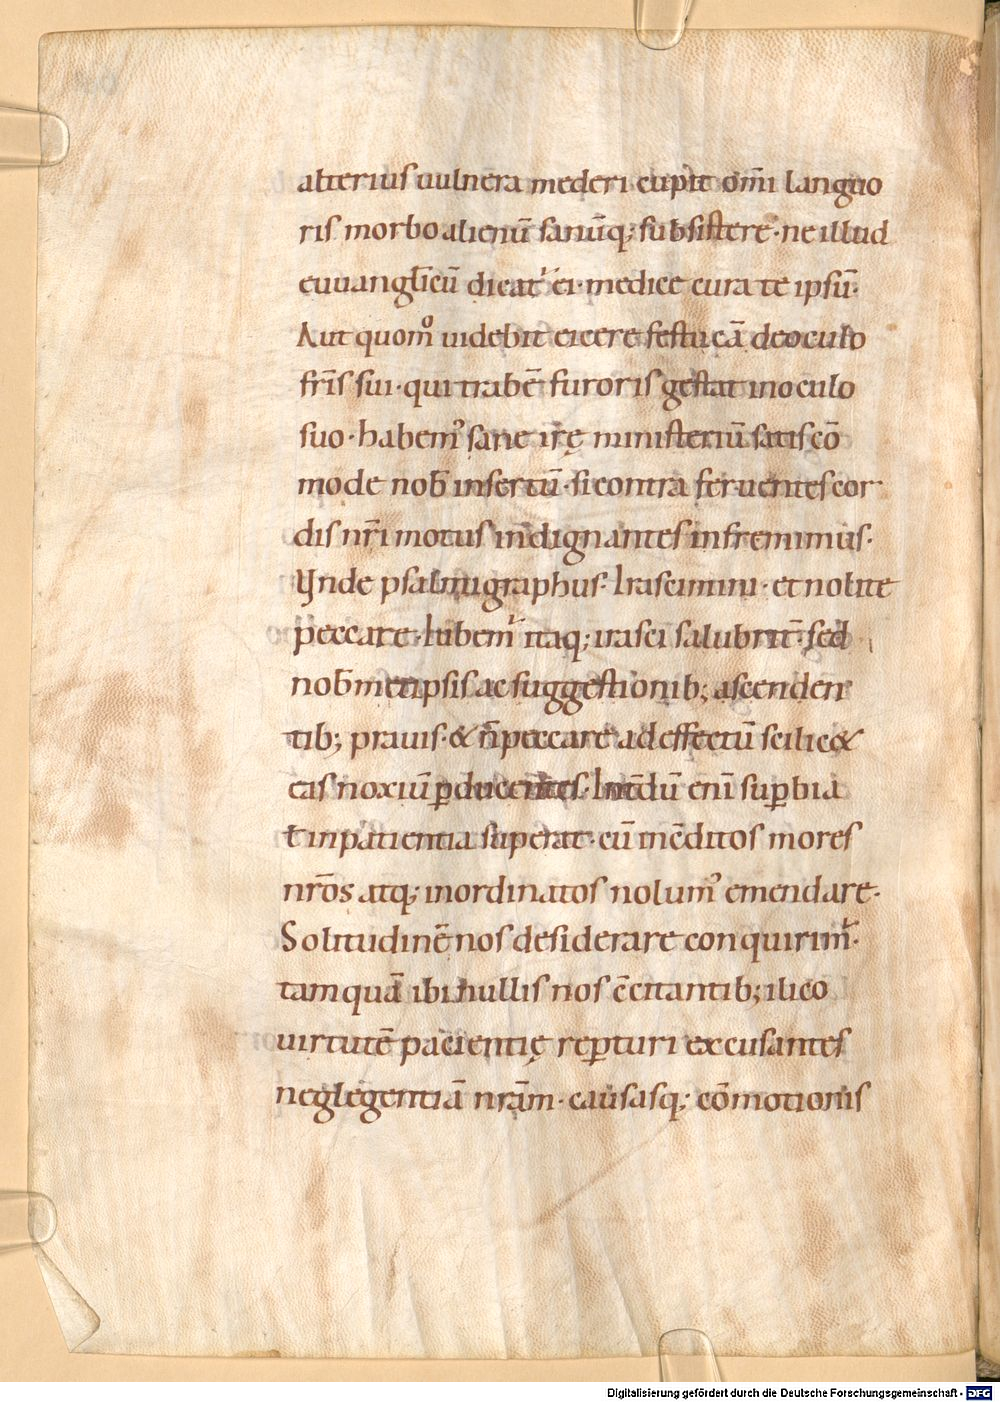 alterius uulnera mederi cupit om̅i languo
ris morbo alienu̅ sanu̅q; subsistere · ne illud
euuanglicu̅ dicat᷑ ei · medice cura te ipsu̅ ·
Aut quomͦ uidebit eicere festuca̅ de oculo
fr̅is sui · qui trabe̅ furoris gestat in oculo
suo · habem᾿ sane irę ministeriu̅ satis co̅
mode nob̅ insertu̅ · si contra feruentes cor
dis nr̅i motus indignantes infremimus ·
Vnde psalmigraphus · Irascimini · et nolite
peccare · Iubem᷑ itaq; irasci salubrit̅ · sed
nob̅ metipsis ac suggestionib; ascenden
tib; prauis · & n̅ peccare ad effectu̅ scilic&
eas noxiu̅ ꝑducentes · Int̅du̅ eni̅ suꝑbia
ł inpatientia superat · cu̅ inc̅ditos mores
nr̅os atq; inordinatos nolum᾿ emendare ·
Solitudine̅ nos desiderare conquirim᷑ ·
tamqua̅ ibi nullis nos c̅citantib; ilico
uirtute̅ pacientię reꝑturi excusantes
neglegentia̅ nr̅am · causasq; co̅motionis
Digitalisierung gefördert durch die Deutsche Forschungsgemeinschaft - DFG